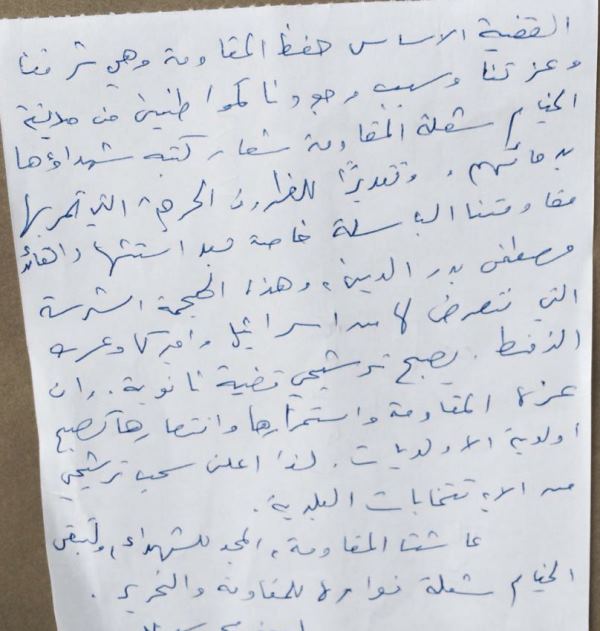 القضية الاساس حفظ المقاومة وهي شرفنا
وعزتنا وسبب وجودنا كمواطنين من مدينة
الخيام شعلة المقاومة شعار كتبه شهداؤها
بدمائهم، وتقديرًا للظروف الحرجة التي تمر بها
مقاومتنا الباسلة خاصة بعد استشهاد القائد
مصطفى بدر الدين، وهذه الهجمة الشرسة
التي نتعرض لها من اسرائيل وامركا وعرب
النفط. يصبح ترشيحي قضية ثانوية. وان
عزة المقاومة واستمرارها وانتصارها يصبح
اولوية الاولويات. لذا اعلن سحب ترشيحي
من الانتخابات البلدية.
عاشت المقاومة، المجد للشهداء، ولتبقى
الخيام شعلة نوارة للمقاومة والتحرير.